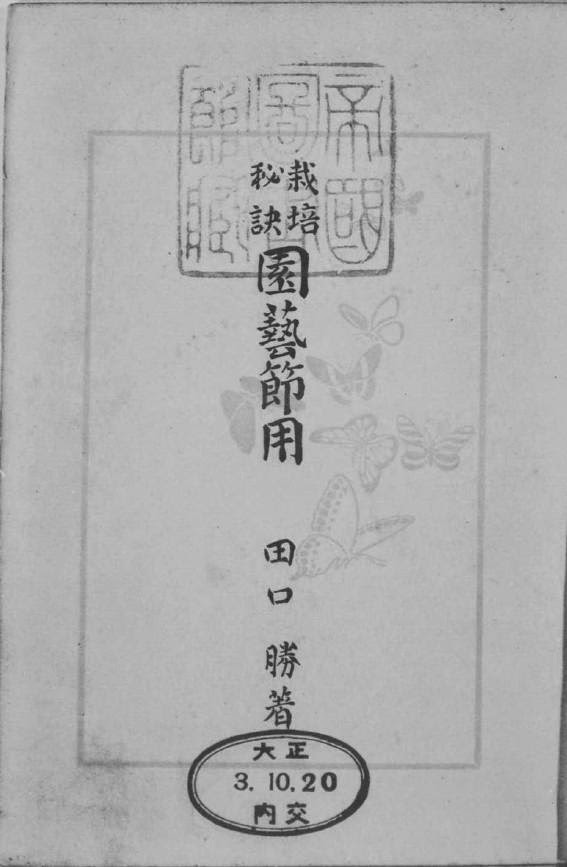 帝國
圖書
館藏
栽培
秘訣
園藝節用
田口勝著
大正
3.10.20
内交